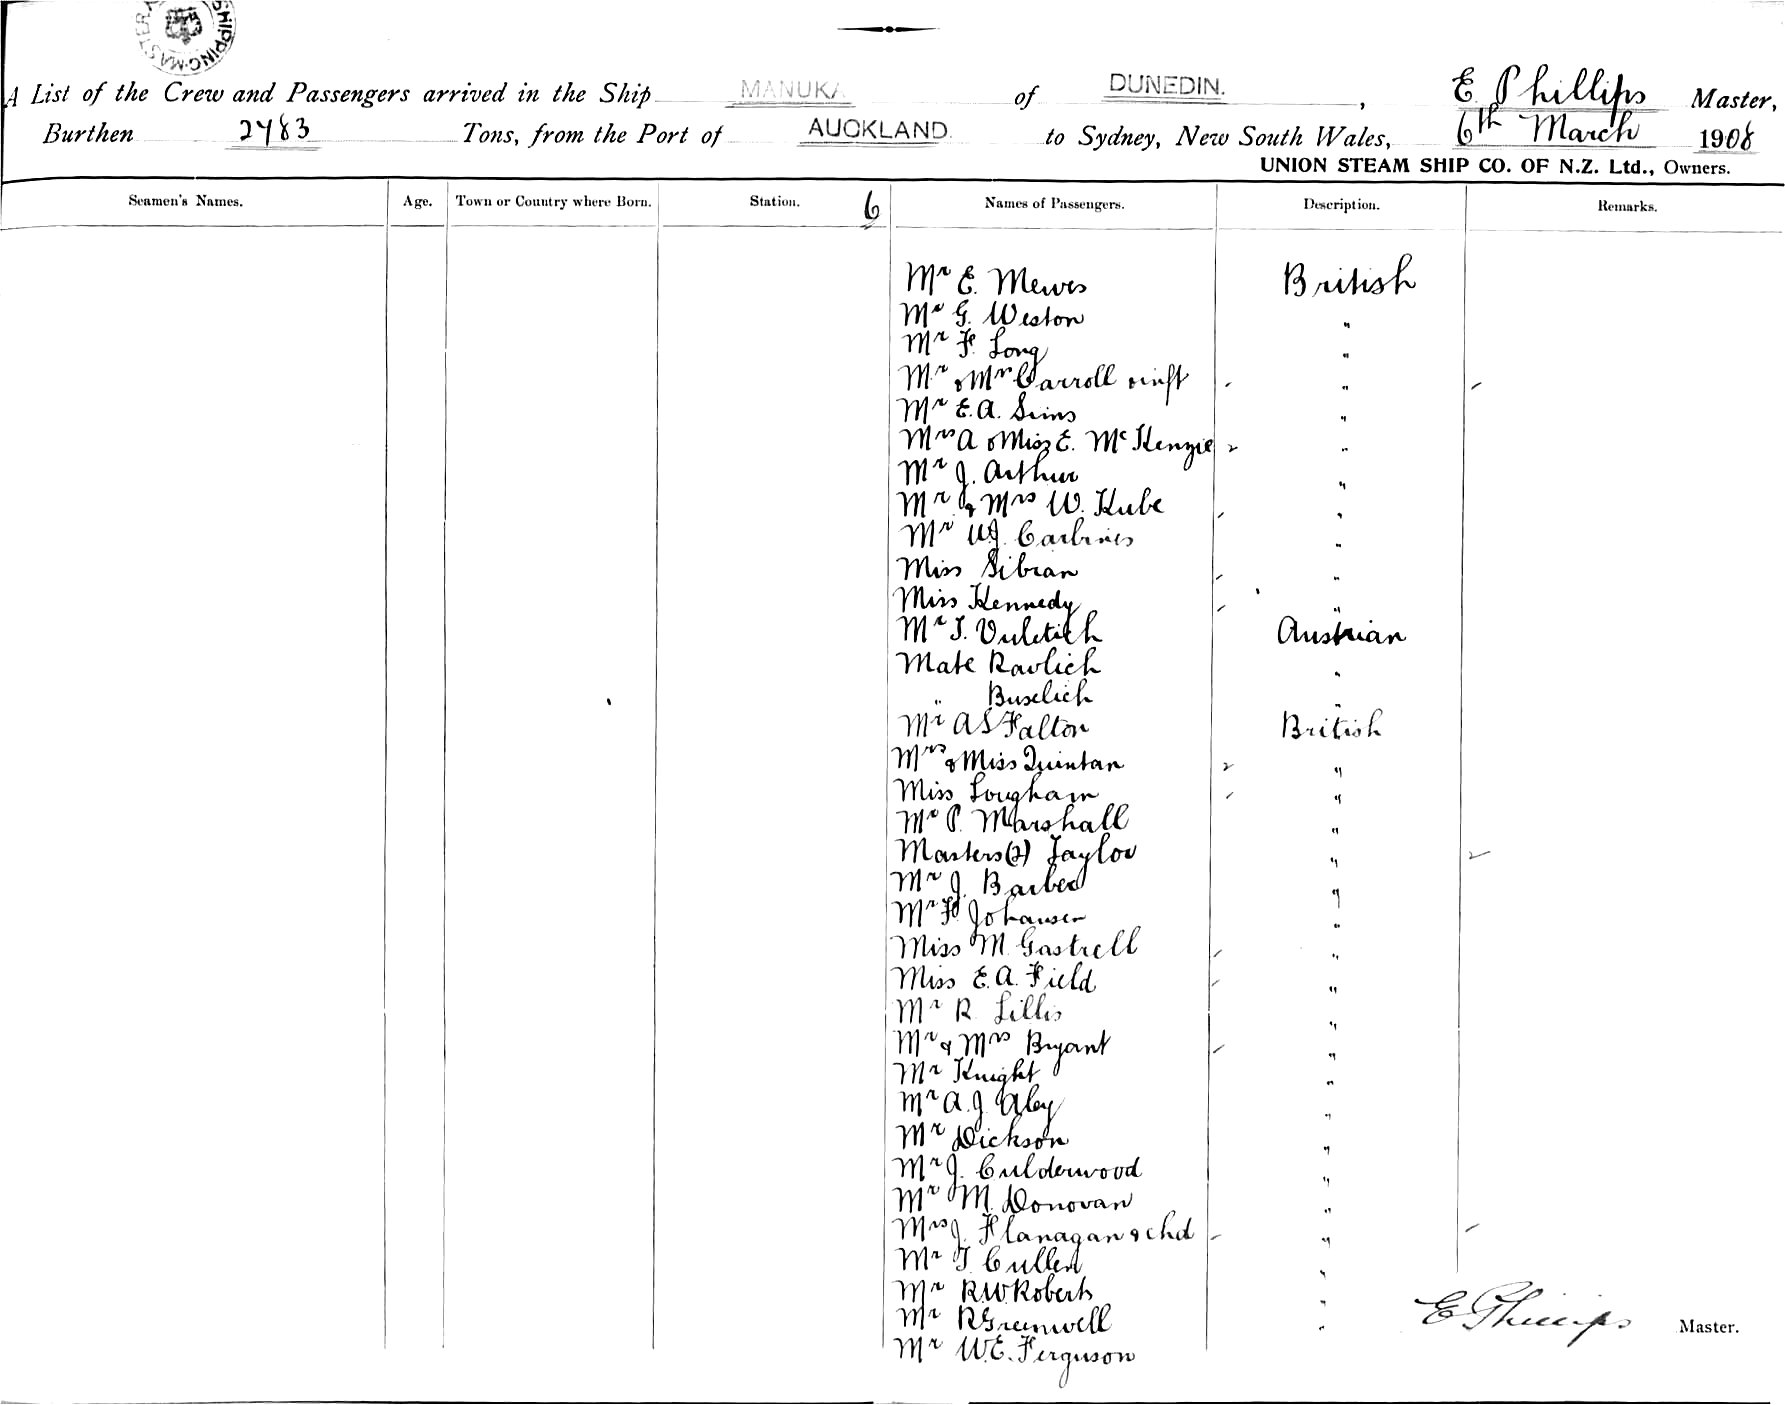 SHIPPING MASTER
A List of the Crew and Passengers arrived in the Ship MANUKA of DUNEDIN. , E Phillips Master,
Burthen 2483 Tons, from the Port of AUCKLAND. to Sydney, New South Wales, 6th March 1908
UNION STEAM SHIP CO. OF N.Z. Ltd., Owners.
Seamen's Names. Age. Town or Country where Born. Station. 6 Names of Passengers. Description. Remarks.
Mr E. Mewes British
Mr G. Weston "
Mr F. Long "
Mr & Mrs Carroll & inft "
Mr E.A. Sims "
Mrs A & Miss E. McKenzie 2 "
Mr J. Arthur "
Mr & Mrs W. Kube "
Mr W.J. Carbines "
Miss Sibian "
Miss Kennedy "
Mr T. Vuletich Austrian
Mate Ravlich "
" Buselich "
Mr A S Falton British
Mrs & Miss Quinlan 2 "
Miss Lougham "
Mr P. Marshall "
Masters (2) Taylor " 2
Mr J. Barber "
Mr F. Johansen "
Miss M. Gastrell "
Miss E.A. Field "
Mr R Lillis "
Mr & Mrs Bryant "
Mr Knight "
Mr A.J. Aley "
Mr Dickson "
Mr J. Culderwood "
Mr M. Donovan "
Mrs J. Flanagan & chd "
Mr T Cullen "
Mr R.W. Roberts "
Mr R Greenwell "
Mr W.E. Ferguson
E Phillips Master.